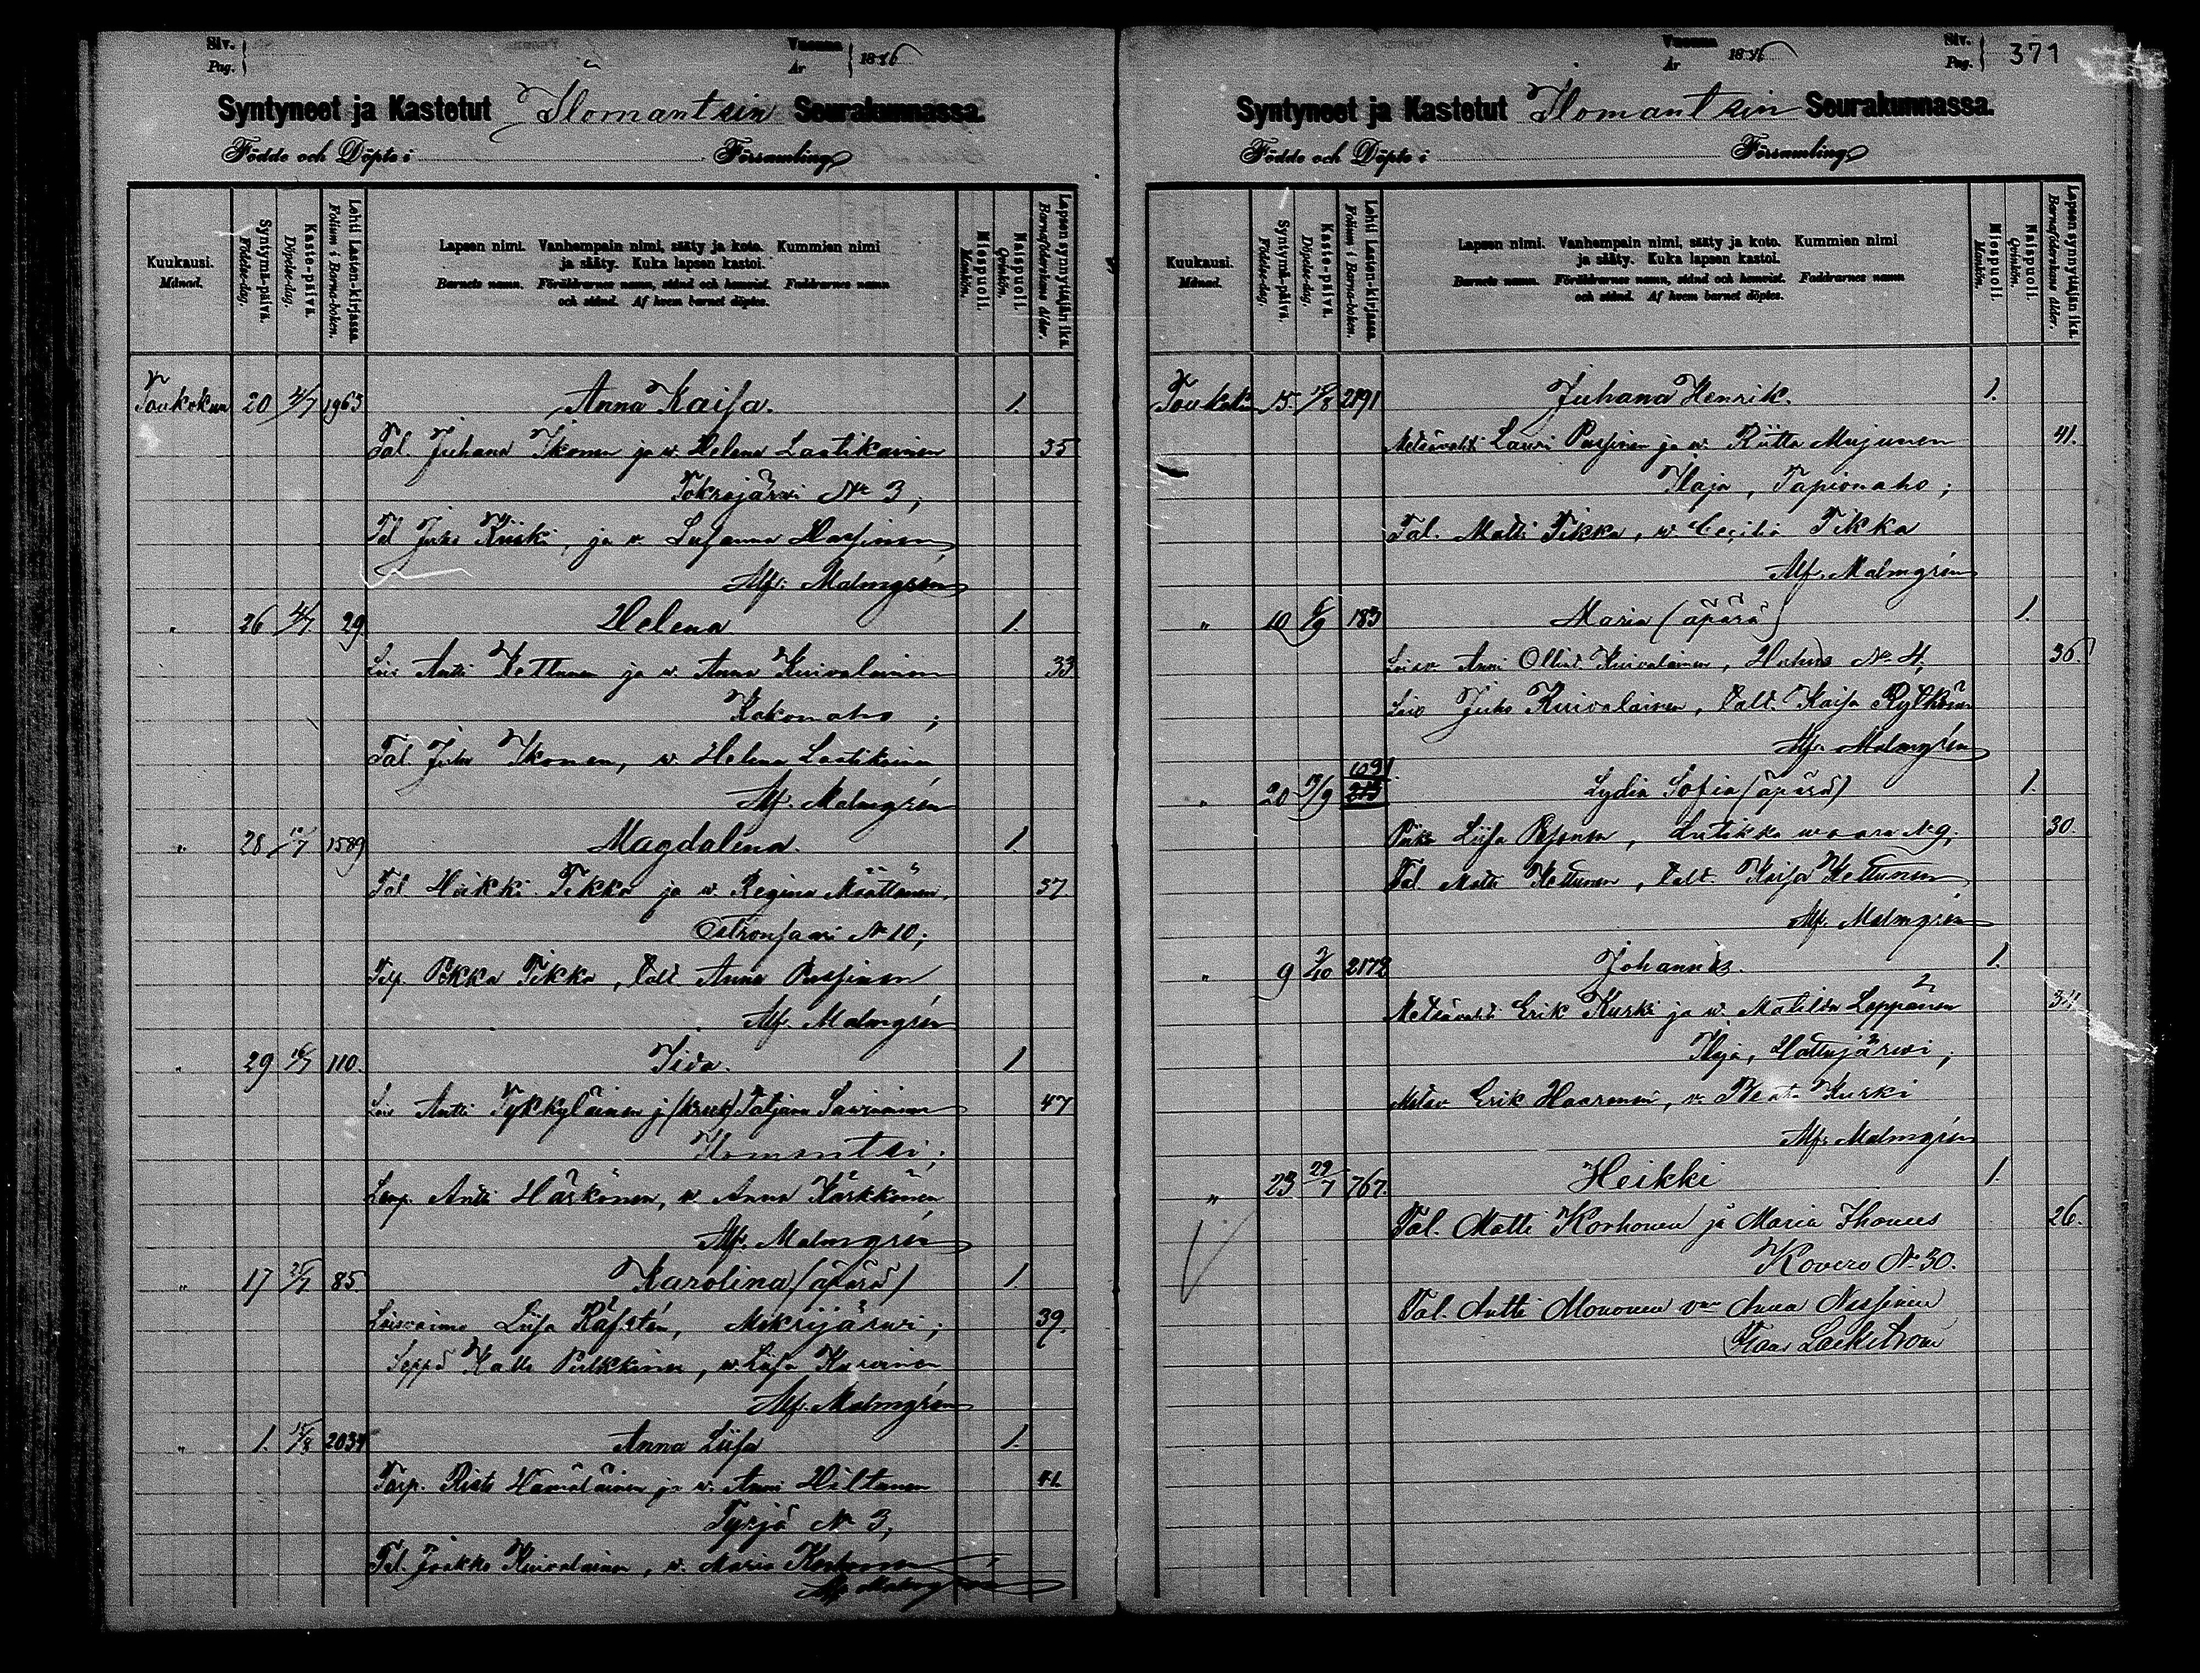 Siv. Pag.
Vuonna År 1886
Syntyneet ja Kastetut Ilomantsin Seurakunnassa.
Födde och Döpte i Församling
Kuukausi. Månad.
Syntymä-päivä. Födelse-dag.
Kaste-päivä. Döpelse-dag.
Lehti Lasten-kirjassa. Folium i Barna-boken.
Lapsen nimi. Vanhempain nimi, sääty ja koto. Kummien nimi
ja sääty. Kuka lapsen kastoi.
Barnets namn. Föräldrarnes namn, stånd och hemvist. Faddrarnes namn
och stånd. Af hvem barnet döptes.
Miespuoli. Mankön.
Naispuoli. Qvinkön.
Lapsen synnyttäjän ikä. Barnaföderskans ålder.
Toukokuu 20 4/7 1963 Anna Kaisa. 1.
Tal. Juhana Ikonen ja w. Helena Laatikainen 35
Tokrajärwi № 3;
Tal Juho Kuiski, ja v. Susanna Hassinen
Alf. Malmgrén
" 26 4/7 29 Helena 1.
Lois Antti Kettunen ja w. Anna Kuivalainen 33
Kakonaho;
Tal. Juho Ikonen, w. Helena Laatikainen
Alf. Malmgrén
" 28 10/7 1589 Magdalena. 1.
Tal. Heikki Tikka ja w. Regina Määttänen, 37
Oitronsaari № 10;
Pekka Tikka, Talt. Anna Pussinen
Alf. Malmgrén
" 29 110. Iida. 1
Lois Antti Tykkyläinen j. (kreek) Tatjana Sawinainen 47
Ilomantsi;
Antti Härkönen, w. Anna Kärkkänen
Alf. Malmgrén
" 17 25/7 85. Karolina (äpärä) 1.
Loisvaimo Liisa Räfstén, Mekrijärwi; 39.
Seppä Kalle Pulkkinen, w. Liisa Karvinen
Alf. Malmgrén
" 1. 15/8 2034 Anna Liisa 1.
Torp. Risto Hämäläinen ja w. Anni Hiltunen 41
Tyrjä № 3,
Tal. Jaakko Kuivalainen, w. Maria Korhonen
Alf. Malmgrén
Vuonna År 1886
Siv. Pag. 371
Syntyneet ja Kastetut Ilomantsin Seurakunnassa.
Födde och Döpte i Församling
Kuukausi. Månad.
Syntymä-päivä. Födelse-dag.
Kaste-päivä. Döpelse-dag.
Lehti Lasten-kirjassa. Folium i Barna-boken.
Lapsen nimi. Vanhempain nimi, sääty ja koto. Kummien nimi
ja sääty. Kuka lapsen kastoi.
Barnets namn. Föräldrarnes namn, stånd och hemvist. Faddrarnes namn
och stånd. Af hvem barnet döptes.
Miespuoli. Mankön.
Naispuoli. Qvinkön.
Lapsen synnyttäjän ikä. Barnaföderskans ålder.
Toukokuu 15. 2191 Juhana Henrik. 1.
Metsävahti Lauri Pussinen ja w. Riitta Mujunen 41.
Ilaja, Tapionaho;
Tal. Matti Tikka, w. Cecilia Tikka
Alf. Malmgrén
" 10 183 Maria (äpärä) 1.
Anni Ollint. Kuivalainen, Huhus № 4, 36.
Lois Juho Kuivalainen, Talt. Kaisa Rytkönen
Alf. Malmgrén
1031
" 20 213 Lydia Sofia (äpärä) 1.
Piika Liisa Pesonen, Lutikkawaara № 9, 30.
Tal Matti Kettunen, Talt. Kaisa Kettunen
Alf. Malmgrén
" 9 3/10 2172 Johannes. 1.
Metsävahti Erik Kurki ja w. Matilda Leppänen 34
Ilaja, Hattujärwi;
Metsv. Erik Haaranen, v. Beata Kurki
Alf. Malmgrén
" 23 29/7 767. Heikki 1.
Tal. Matti Korhonen ja Maria Ihonus 26.
Kovero № 30.
Tal. Antti Mononen vmo Anna Nissinen
Lackström